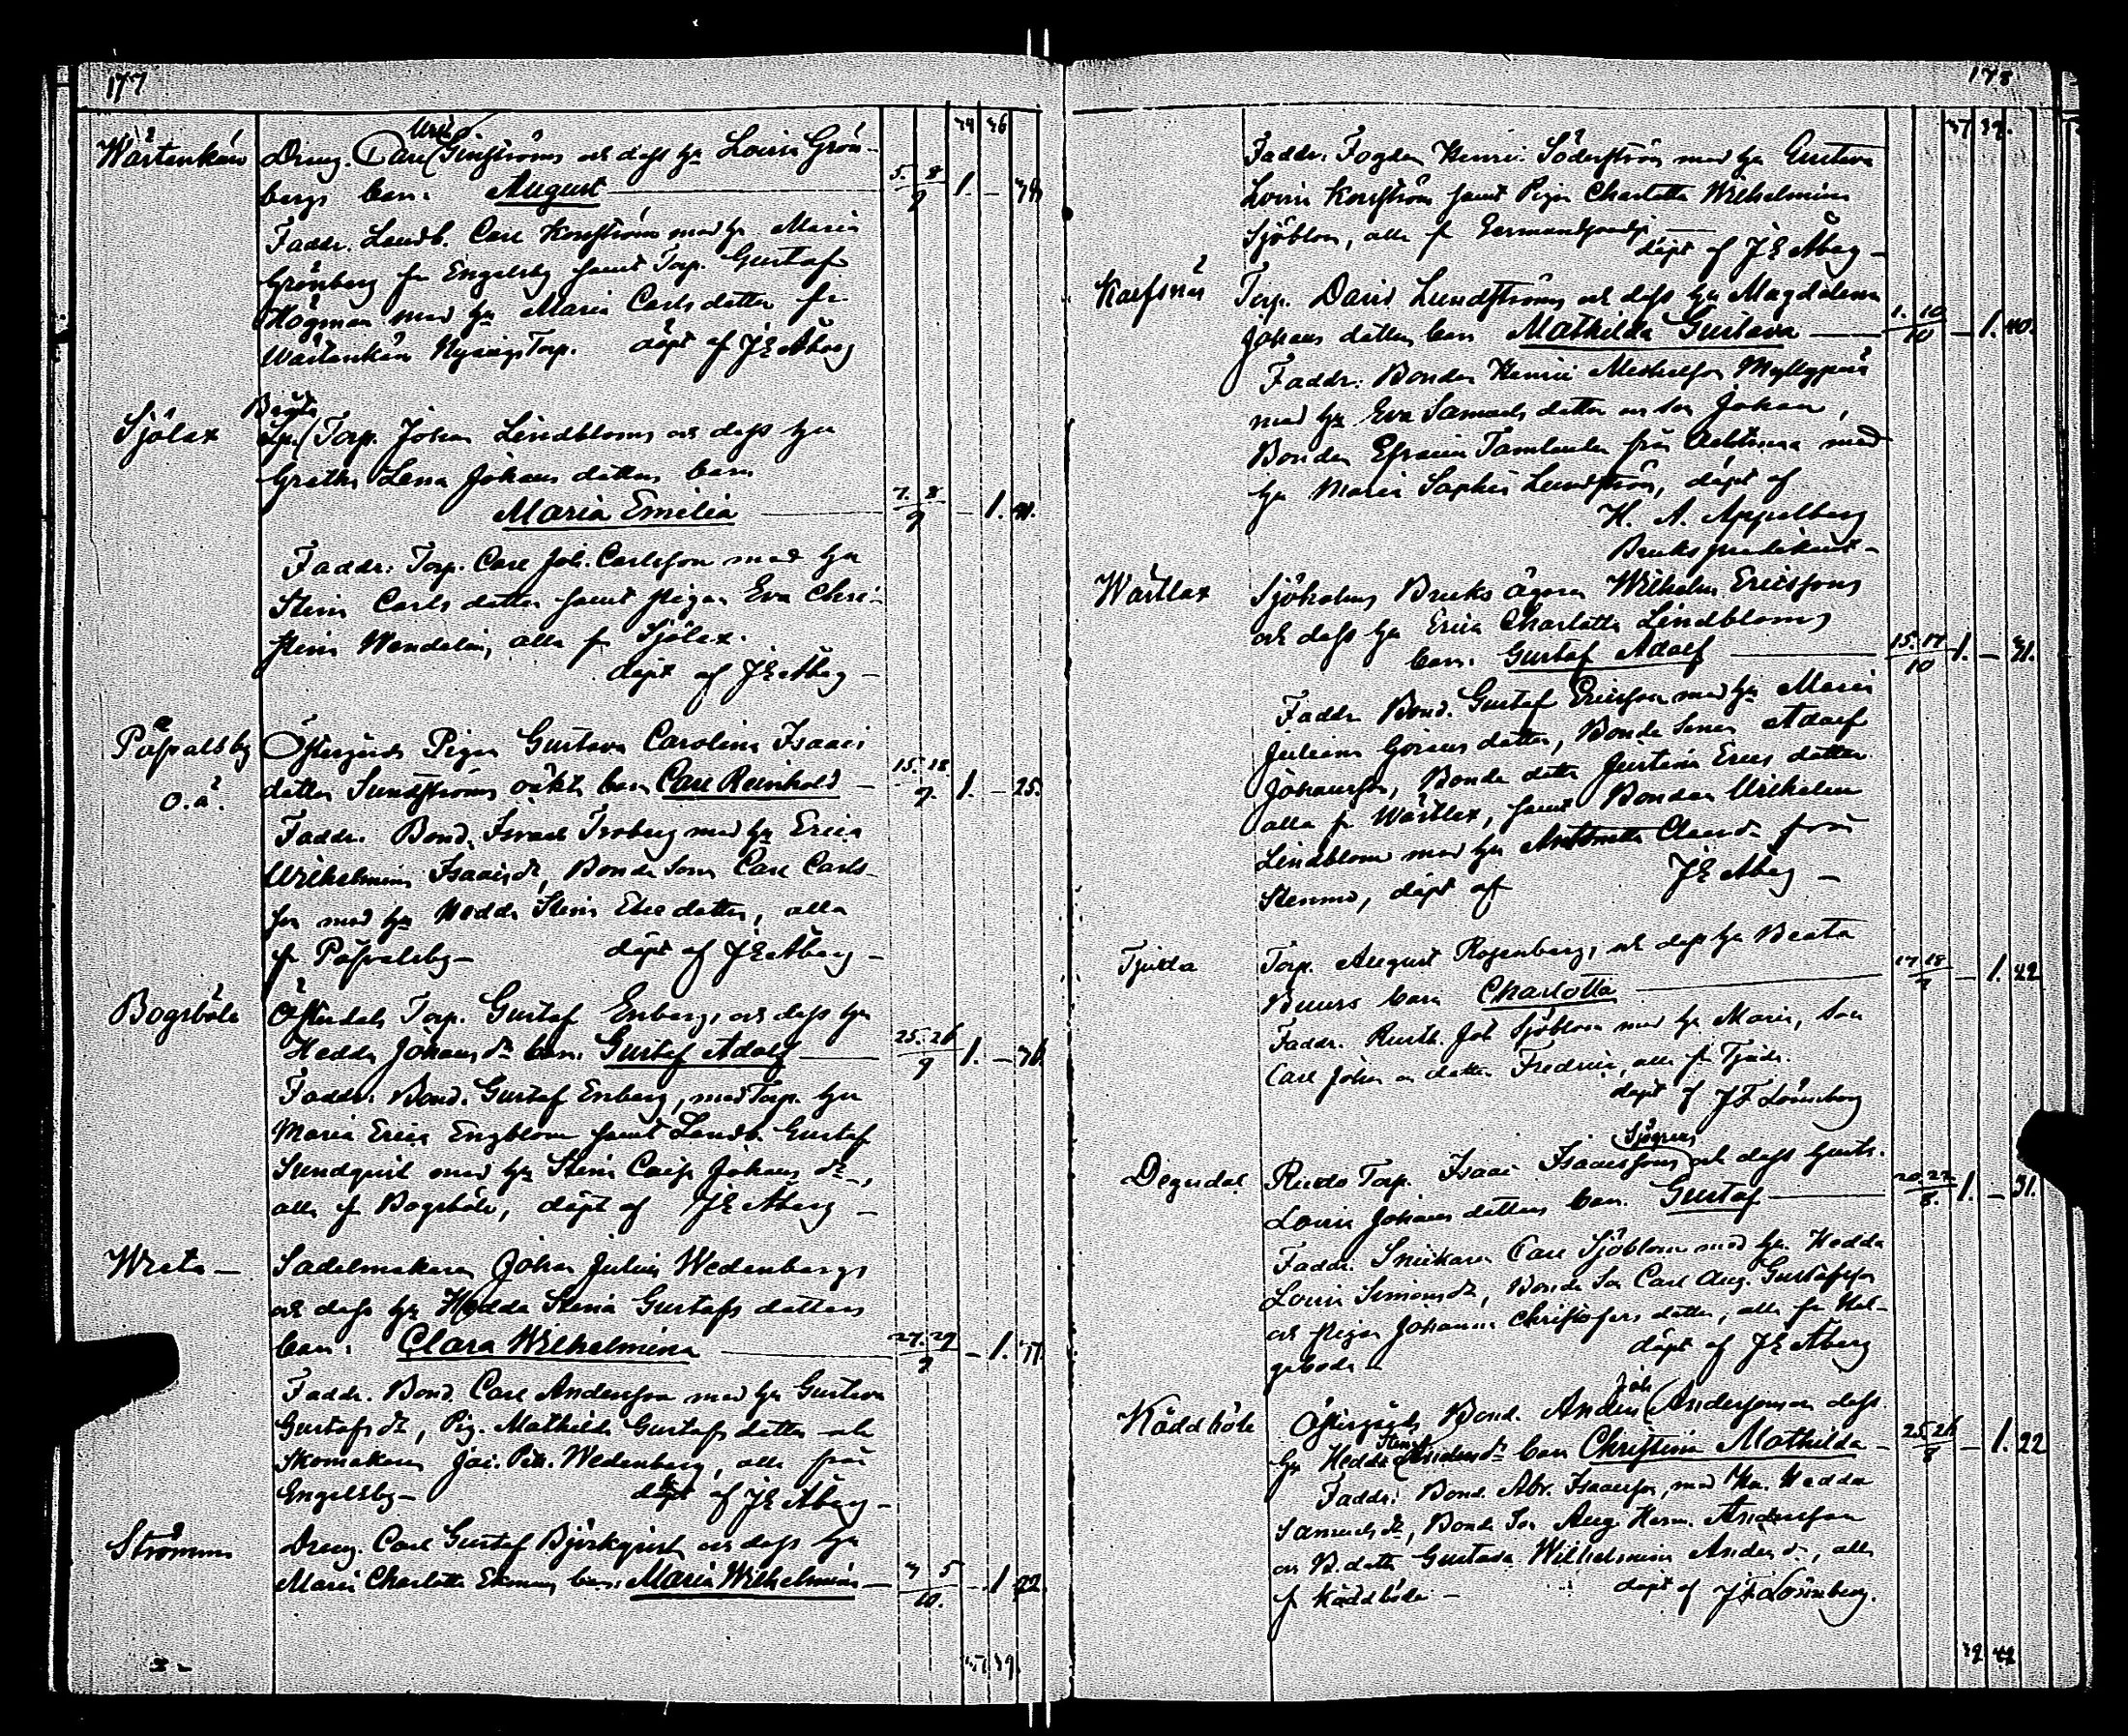 177
34 36
Wästankärr Dreng. Carl Genströms och dess hu Lovisa Grön-
bergs barn. August 5. 8 / 9 1. –
Faddr. Landb. Carl Kornström med hu Maria
Grönberg fr Engelsby samt Torp. Gustaf
Högman med hu Maria Carls dotter fr
Wästankärr Nybings Torp. döpt af J E Åberg
Sjölax Torp. Johan Lindbloms och dess hu
Gretha Lena Johans dotters barn
Maria Emilia 7. 8 / 9 – 1.
Faddr. Torp. Carl Joh. Carlsson med hu
Stina Carls dotter samt pigan Eva Chri-
stina Wendelin, alla fr Sjölax.
döpt af J E Åberg –
Påvalsby Östergårds Pigan Gustava Carolina Isaacs
o.ä. dotter Sundströms oäkta barn Carl Reinhold – 15. 18. / 9. 1. – 25.
Faddr. Bond. Israel Isoberg med hu Erica
Wilhelmina Isaacs dr, Bonde Son Carl Carls-
son med hu Hedda Stina dotter, alla
fr Påvalsby – döpt af J E Åberg –
Bogsböle Österdals Torp. Gustaf Enbergs och dess hu
Hedda Johans dr barn. Gustaf Adolf 25. 26 / 9 1. – 36.
Faddr. Bond. Gustaf Enberg, med Torp. hu
Maria Erica Engblom samt Landb. Gustaf
Sundqvist med hu Stina Caisa Johans dr,
alla fr Bogsböle, döpt af J E Åberg –
Wreta – Sadelmakaren Johan Julius Wedenbergs
och dess hu Hedda Stina Gustafs dotters
barn. Clara Wilhelmina 27. 29 / 9 – 1. 37.
Faddr. Bond Carl Andersson med hu Gustava
Gustafs dr, Pig. Mathilda Gustafs dotter och
Skomakaren Jac. Pett. Wedenberg, alla från
Engelsby – döpt af J E Åberg –
Strömma Dreng. Carl Gustaf Björkqvists och dess hu
Maria Charlotta Ekmans barn. Maria Wilhelmina – 3 5 / 10. – 1 22.
37 39
178
37 39.
Faddr. Fogden Henric Söderström med hu Gustava
Lovisa Kornström samt Pigan Charlotta Wilhelmina
Sjöblom, alla fr
döpt af J E Åberg –
Kaefsnäs Torp. David Lundströms och dess hu Magdalena
Johans dotters barn Mathilda Gustava 1. 10 / 10 – 1. 40.
Faddr. Bonden Henric Michelsson Myllyperä
med hu Eva Samuels dotter och son Johan,
Bonden Efraim Tamlander från med
hu Maria Sophia Lundström, döpt af
H. A. Appelberg
Bruks predikant –
Wästlax Sjöholms Bruks ägaren Wilhelm Ericssons
och dess hu Erica Charlotta Lindbloms
barn. Gustaf Adolf 15. 17 / 10 1. – 31.
Faddr Bond. Gustaf Ericsson med hu Maria
Juliana Görans dotter, Bonde Sonen Adolf
Johansson, Bonde dottr Justina Erics dotter
alla fr Wästlax, samt Bonden Wilhelm
Lindblom med hu Antonetta Claes dr från
Stenmo, döpt af J E Åberg –
Tjuda Torp. August Rosenbergs och dess hu Beata
Buurs barn Charlotta 17 18 / 9 – 1. 42
Faddr. Rusth. Joh Sjöblom med hu Maria, son
Carl Johan och dotter Fredrica, alla fr Tjuda.
döpt af J F Lönnberg
Degerdal Rusto Torp. Isaac Isaacssons Sjögrens och dess hustr.
Lovisa Johans dotters barn. Gustaf 20. 22 / 8. 1. – 31.
Faddr. Snickaren Carl Sjöblom med hu Hedda
Lovisa Simons dr, Bonde Son Carl Aug. Gustafsson
och pigan Johanna Christofers dotter, alla fr Hel-
geboda döpt af J E Åberg
Käddböle Östergårds Bond. Anders Joh Anderssons och dess
hu Hedda Stina Anders dr barn Christina Mathilda – 25 26 / 8 – 1. 22
Faddr. Bond. Abr. Isaacsson, med Hu. Hedda
Samuels dr, Bonde Son Aug. Herm. Andersson
och B. dottr Gustava Wilhelmina Anders dr, alla
fr Käddböle – döpt af J F Lönnberg.
39 42